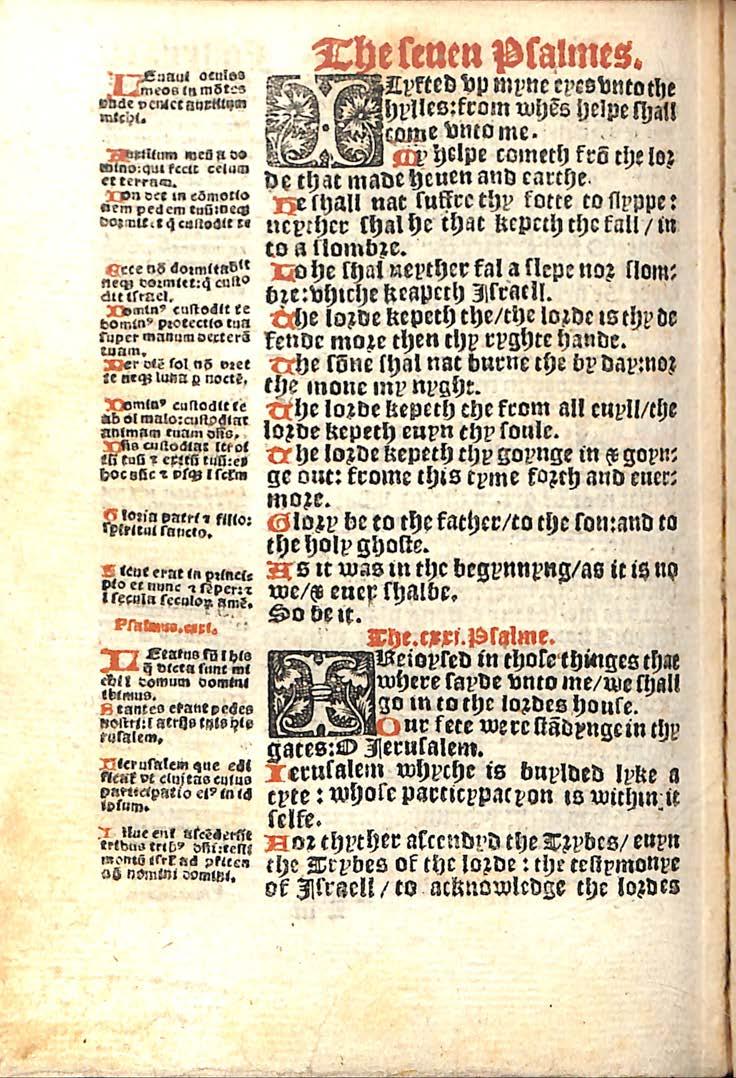 The seuen Psalmes.
Leuaui oculos
meos in mõtes
vnde veniet auxilium
michi.
Auxilium meũ a do
mino: qui fecit celum
et terram.
Non det in cõmotio
nem pedem tuũ: neqꝫ
dormitet q̃ custodit te
Ecce nõ dormitabit
neqꝫ dormiet: q̃ custo
dit israel.
Dominꝰ custodit te
dominꝰ protectio tua
super manum dexterã
tuam.
Per diẽ sol nõ vret
te neqꝫ luna ꝑ noctẽ.
Dominꝰ custodit te
ab oĩ malo: custodiat
animam tuam dñs.
Dñs custodiat
tuũ ⁊ exitũ tuũ: ex
hoc nũc ⁊
Gloria patri ⁊ filio:
spiritui sancto.
Sicut erat in princi-
pio et nunc ⁊ sẽper: ⁊
ĩ secula seculoꝝ amẽ.
Psalmus.cxxi.
Letatus sũ ĩ his
q̃ dicta sunt mi
chi ĩ domum domini
ibimus.
Stantes erant pedes
nostri: ĩ atrijs tuis hie
rusalem.
Hierusalem que edi
ficat̃ vt ciuitas cuius
participatio eiꝰ in id
ipsum.
Illuc eni ascẽderũt
tribus tribꝰ dñi: testi
moniũ isrl ad
nomini domini.
I Lyfted vp myne eyes vnto the
hylles: from whẽs helpe shall
come vnto me.
My helpe cometh frõ the lor
de that made heuen and earthe.
He shall nat suffre thy fotte to slyppe:
neyther shal he that kepeth the fall / in
to a slombre.
Lo he shal neyther fal a slepe nor slom:
bre: vhiche keapeth Israell.
The lorde kepeth the/the lorde is thy de
fende more then thy ryghte hande.
The sõne shal nat burne the by day: nor
the mone my nyght.
The lorde kepeth the from all euyll/the
lorde kepeth euyn thy soule.
The lorde kepeth thy goynge in & goyn:
ge out: frome this tyme forth and euer:
more.
Glory be to the father/to the son: and to
the holy ghoste.
As it was in the begynnyng/as it is no
we/& euer shalbe.
So be it.
The.cxxi.Psalme.
I Reioysed in those thinges that
where sayde vnto me/we shall
go in to the lordes house.
Our fete were stãdynge in thy
gates: O Jerusalem.
Ierusalem whyche is buylded lyke a
cyte : whose partycypacyon is within it
selfe.
For thyther ascendyd the Trybes/ euyn
the Trybes of the lorde : the testymonye
of Israell / to acknowledge the lordes